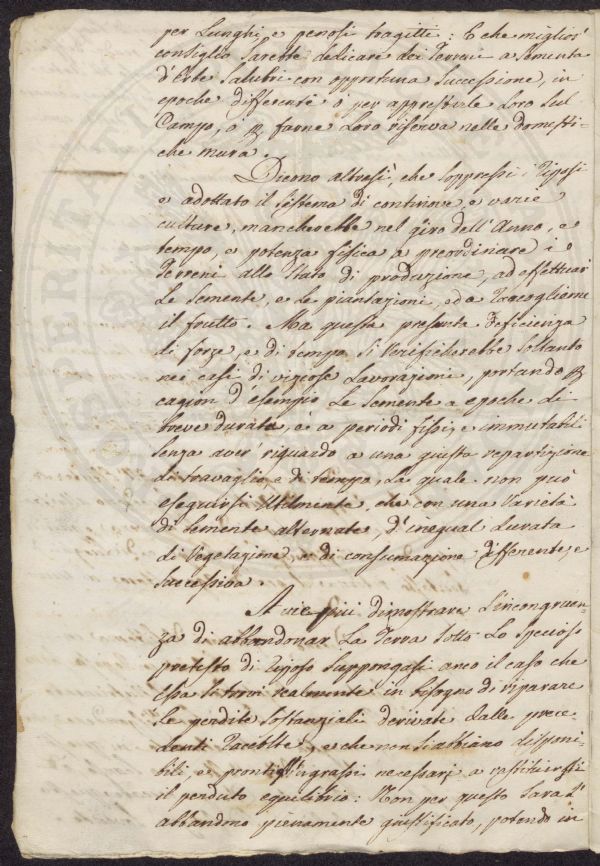 per Lunghi, e penosi tragitti: E che miglior
consiglio sarebbe dedicare dei Terreni a sementa
d'Erbe salubri con opportuna successione, in
epoche differenti o per apprestirle loro sul
Campo, o p farne loro riserva nelle domesti-
che mura.
Dicono altresì, che soppressi i Riposi
e adottato il sistema di continove, e varie
culture, mancherebbe nel giro dell'Anno, e
tempo, e potenza fisica a preordinare i
Terreni allo stato di produzione, ad effettuar
le semente, e le piantazioni, ed a raccoglierne
il frutto. Ma questa presunta deficienza
di forze, e di tempo si verificherebbe soltanto
nei casi di viziose lavorazioni, portando p
cagion d'esempio le semente a epoche di
breve durata, e a periodi fissi, e immutabili
senza aver riguardo a una giusta repartizione
di travaglio, e di tempo, la quale non può
eseguirsi utilmente, che con una varietà
di semente alternate, d'inegual durata
di vegetazione e di consumazione differente, e
successiva.
A vie più dimostrare l'incongruen-
za di abbandonar la Terra sotto lo specioso
pretesto di Riposo suppongasi anco il caso che
essa si trovi realmente in bisogno di riparare
le perdite sostanziali derivate dalle prece-
denti raccolte, e che non si abbiano disponi-
bili, e pronti gl'ingrassi necessarj a restituirsi
il perduto equilibrio: Non per questo sarà l'
abbandono pienamente giustificato, potendo in